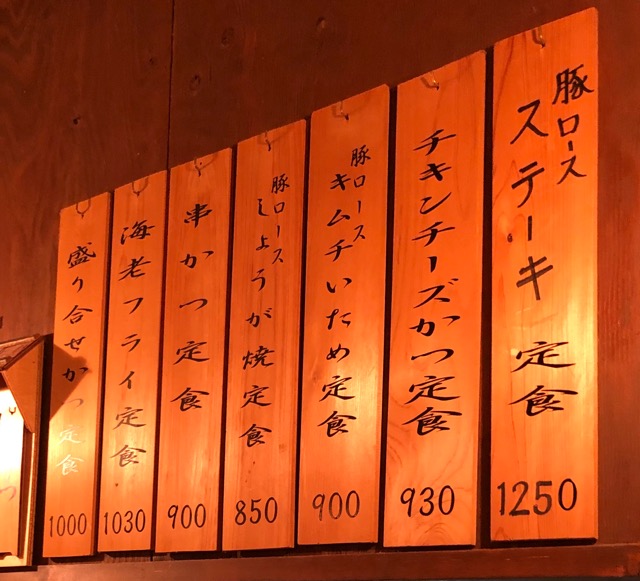 豚ロース
ステーキ定食
1250
チキンチーズかつ定食
930
豚ロース
キムチいため定食
900
豚ロース
しょうが焼定食
850
串かつ定食
900
海老フライ定食
1030
盛り合せかつ定食
1000
つ